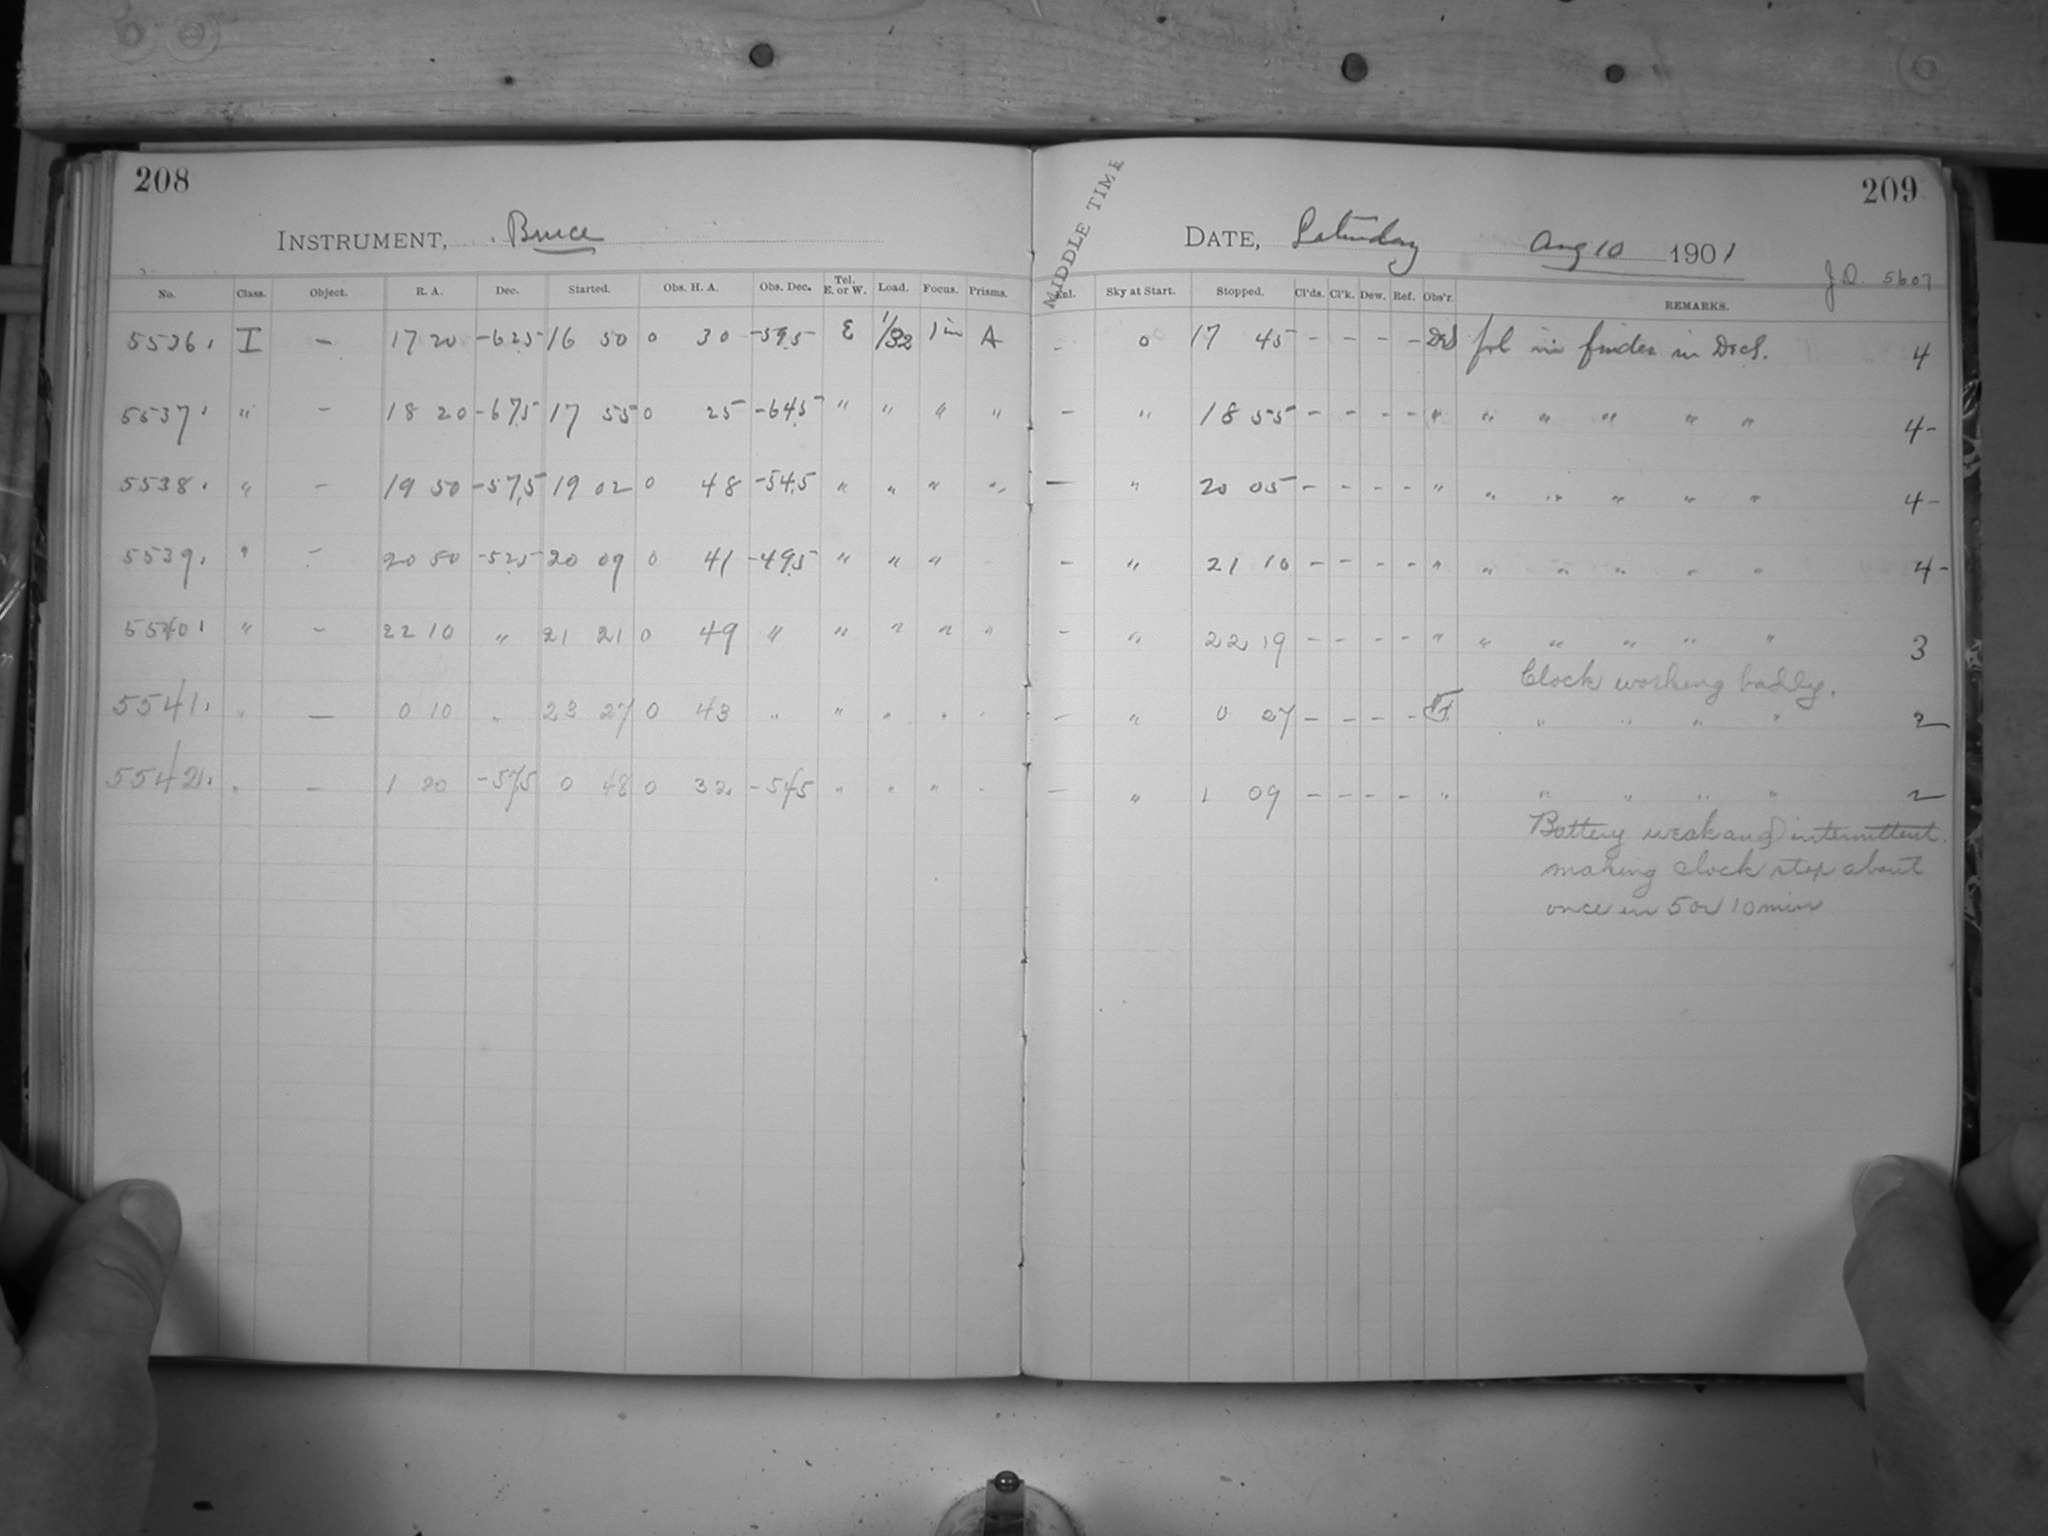 208
INSTRUMENT, Bruce
No. Class. Object. R. A. Dec. Started. Obs. H. A. Obs. Dec. Tel. E. or W. Load. Focus. Prisms.
5536. I — 17 20 -62.5 16 50 0 30 -59.5 E 1/32 1 in A
5537. " — 18 20 -67.5 17 55 0 25 -64.5 " " " "
5538. " — 19 50 -57.5 19 02 0 48 -54.5 " " " "
5539. " — 20 50 -52.5 20 09 0 41 -49.5 " " "
5540. " — 22 10 " 21 21 0 49 " " " " "
5541. " — 0 10 " 23 27 0 43 " " " " "
5542. " — 1 20 -57.5 0 48 0 32 -54.5 " " " "
209
MIDDLE TIME
DATE, Saturday Aug 10 1901
J.D. 5607
Sky at Start. Stopped. Cl'ds. Cl'k. Dew. Ref. Obs'r. REMARKS.
— 0 17 45 - - - - fol in finder in Decl. 4
— " 18 55 - - - - " " " " " " 4-
— " 20 05 - - - - " " " " " " 4-
— " 21 10 - - - - " " " " " " 4-
— " 22 19 - - - - " " " " " " 3
Clock working badly.
— " 0 27 - - - - " " " " 2
— " 1 09 - - - - " " " " " 2
Battery weak and intermittent
making clock stop about
once in 5 or 10 min